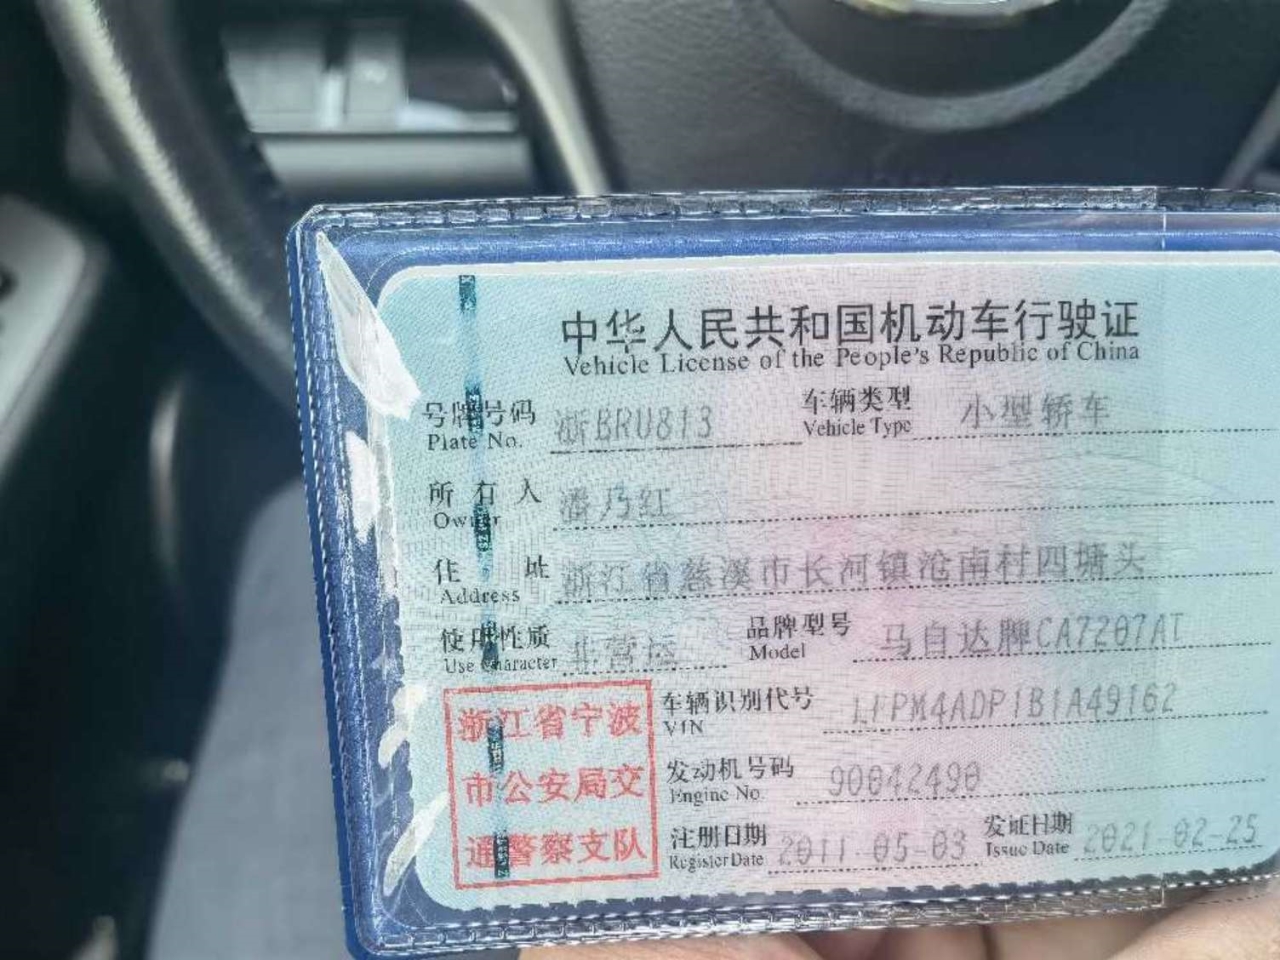 中华人民共和国机动车行驶证
Vehicle License of the People's Republic of China
号牌号码 浙BRU813 车辆类型 小型轿车
Plate No. Vehicle Type
所有人 潘乃红
Owner
住址 浙江省慈溪市长河镇沧南村四塘头
Address
使用性质 非营运 品牌型号 马自达牌CA7207AT
Use Character Model
浙江省宁波
市公安局交
通警察支队
车辆识别代号 LFPM4ADP1B1A49162
VIN
发动机号码 90042490
Engine No.
注册日期 2011-05-03 发证日期 2021-02-25
Register Date Issue Date